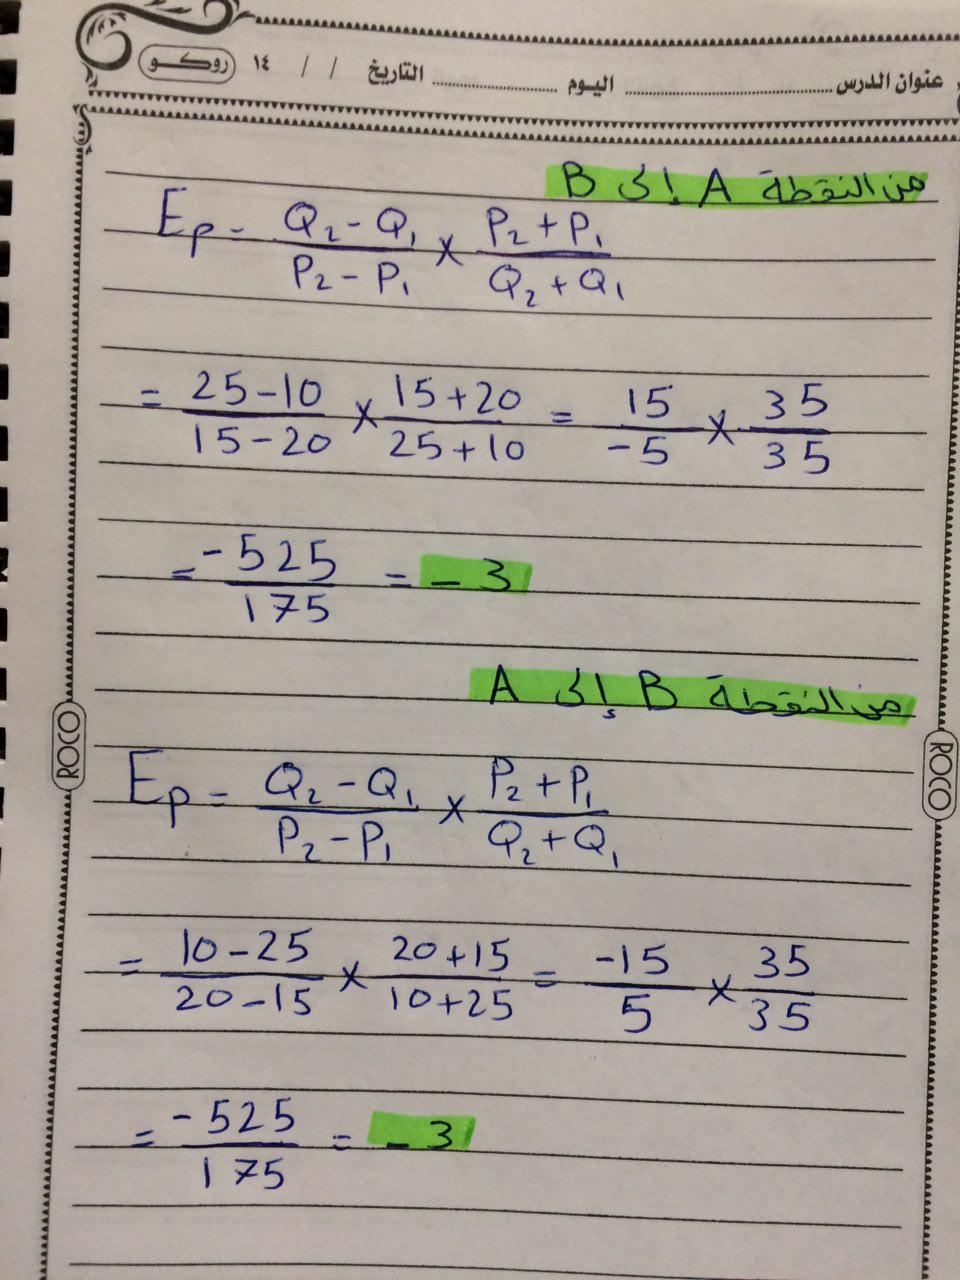 عنوان الدرس ........ اليوم ........ التاريخ / / ١٤ روكو
من النقطة A إلى B
Ep = (Q₂ - Q₁)/(P₂ - P₁) × (P₂ + P₁)/(Q₂ + Q₁)
= (25 - 10)/(15 - 20) × (15 + 20)/(25 + 10) = 15/-5 × 35/35
= -525/175 = -3
من النقطة B إلى A
Ep = (Q₂ - Q₁)/(P₂ - P₁) × (P₂ + P₁)/(Q₂ + Q₁)
ROCO
ROCO
= (10 - 25)/(20 - 15) × (20 + 15)/(10 + 25) = -15/5 × 35/35
= -525/175 = -3